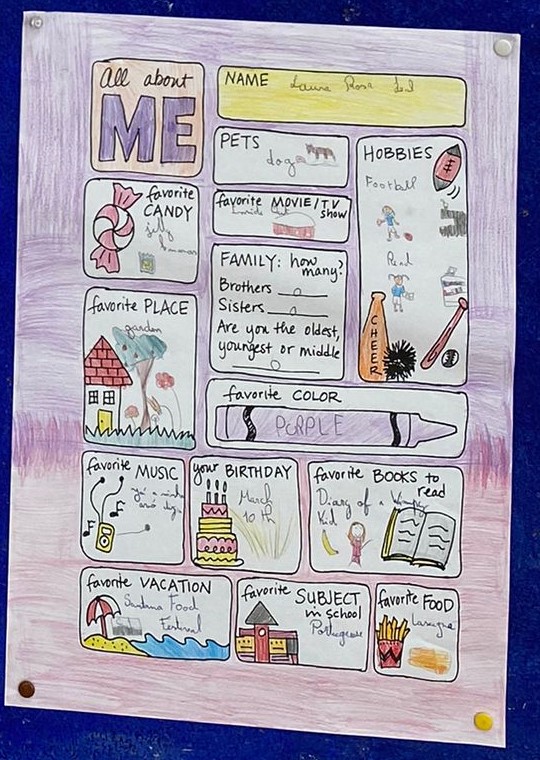 All about
ME
NAME Laura Rosa
PETS
dog
HOBBIES
Football
Read
CHEER
favorite
CANDY
jelly
bananas
favorite MOVIE/TV
show
Inside Out
FAMILY: how
many?
Brothers 0
Sisters 0
Are you the oldest,
youngest or middle
0
favorite PLACE
garden
favorite COLOR
PURPLE
favorite MUSIC
your BIRTHDAY
March
10th
favorite BOOKS to
read
Diary of a Wimpy
Kid
favorite VACATION
Food
Festival
favorite SUBJECT
in school
Portuguese
favorite FOOD
Lasagna